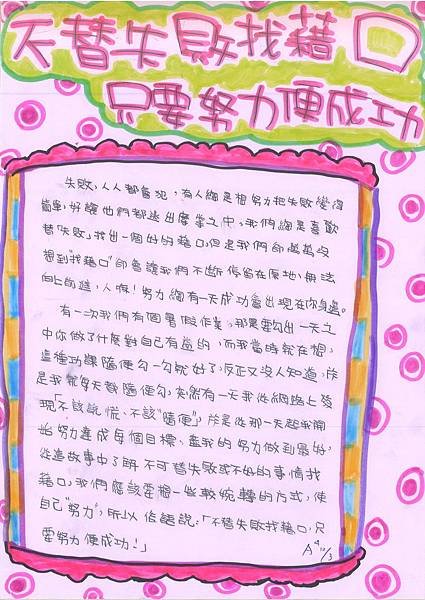 不替失敗找藉口
只要努力便成功
失敗，人人都會犯，有人總是想努力把失敗變得
簡單，好讓他們都逃出魔掌之中，我們總是喜歡
替「失敗」找出一個好的藉口，但是我們卻
想到"找藉口"卻會讓我們不斷停留在原地，無法
向上前進，人啊！努力總有一天成功會出現在你身邊。
有一次我們有個暑假作業，那是要勾出一天之
中你做了什麼對自己有益的，而我當時就在想，
這種功課隨便勾一勾就好了，反正又沒人知道，於
是我就每天都隨便勾，突然有一天我從網路上發
現「不該說謊、不該"隨便"」，於是從那一天起我開
始努力達成每個目標、盡我的努力做到最好，
從這故事中了解不可替失敗或不好的事情找
藉口，我們應該要想一些較婉轉的方式，使
自己"努力"，所以俗語說：「不替失敗找藉口，只
要努力便成功！」